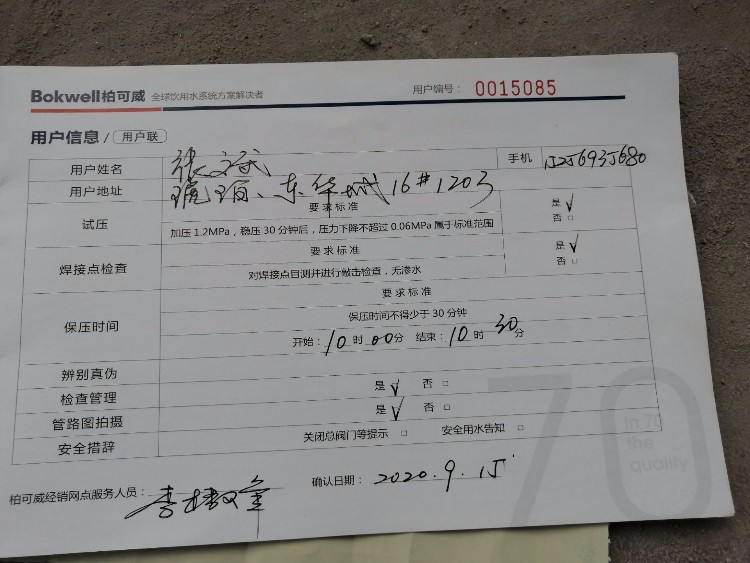 Bokwell柏可威 全球饮用水系统方案解决者 用户编号： 0015085
用户信息 / 用户联
用户姓名 张文斌 手机 15256935680
用户地址 琅琊、东华城16#1203
试压 要求标准 是 √
加压 1.2MPa，稳压 30 分钟后，压力下降不超过 0.06MPa 属于标准范围 否 □
焊接点检查 要求标准 是 √
对焊接点目测并进行敲击检查，无渗水 否 □
保压时间 要求标准
保压时间不得少于 30 分钟
开始： 10 时 00 分 结束： 10 时 30 分
辨别真伪
检查管理 是 √ 否 □
管路图拍摄 是 √ 否 □
安全措辞 关闭总阀门等提示 □ 安全用水告知 □
70
In 70
the
quality
柏可威经销网点服务人员： 确认日期： 2020.9.15